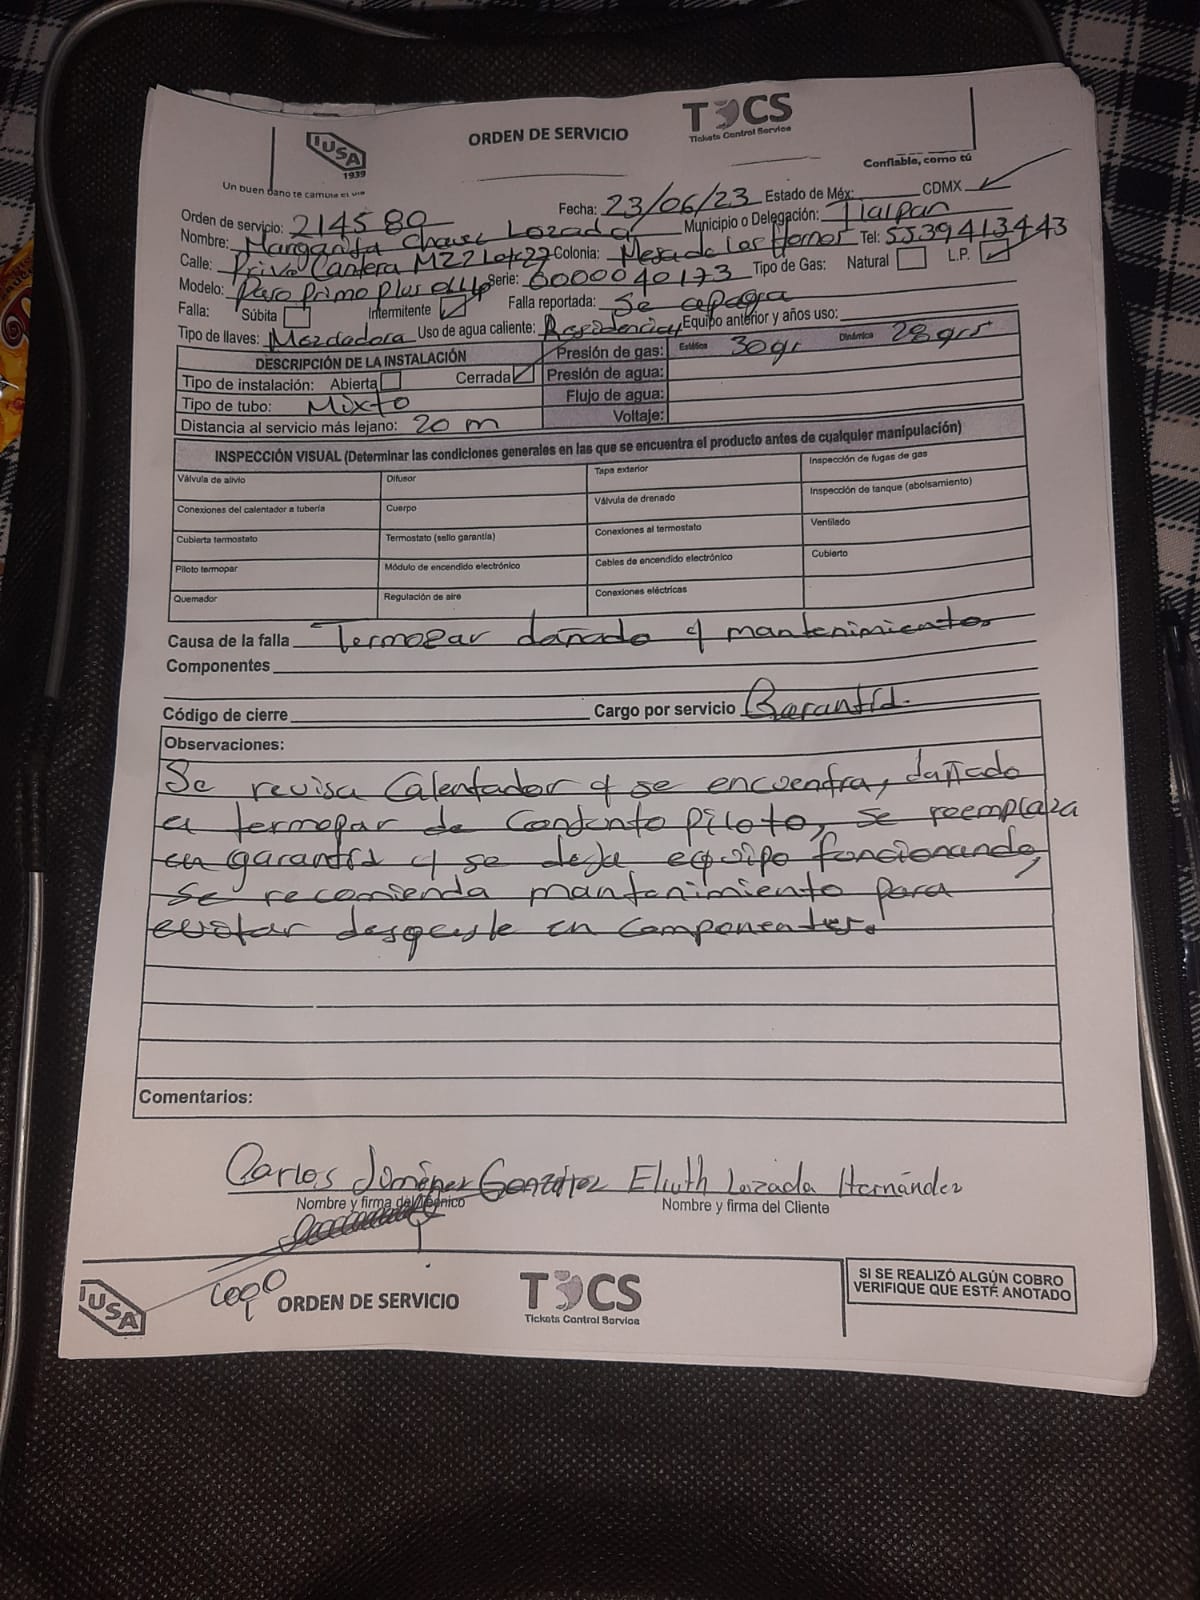 IUSA
1939
Un buen baño te cambia el día
ORDEN DE SERVICIO
TCS
Tickets Control Service
Confiable, como tú
Orden de servicio: 214580
Fecha: 23/06/23 Estado de Méx: CDMX
Nombre: Margarita Chavez Lozada Municipio o Delegación: Tlalpan
Calle: Priva Cantera MZ2 Lote27 Colonia: Mesa de los Hornos Tel: 5539413443
Modelo: Paso Primo Plus Serie: 6000040173 Tipo de Gas: Natural L.P.
Falla: Súbita Intermitente Falla reportada: Se apaga
Tipo de llaves: Mezcladora Uso de agua caliente: Residencial Equipo anterior y años uso:
DESCRIPCIÓN DE LA INSTALACIÓN Presión de gas: Estática 30gr Dinámica 28grs
Tipo de instalación: Abierta Cerrada Presión de agua:
Tipo de tubo: Mixto Flujo de agua:
Distancia al servicio más lejano: 20 m Voltaje:
INSPECCIÓN VISUAL (Determinar las condiciones generales en las que se encuentra el producto antes de cualquier manipulación)
Válvula de alivio Difusor Tapa exterior Inspección de fugas de gas
Conexiones del calentador a tubería Cuerpo Válvula de drenado Inspección de tanque (abolsamiento)
Cubierta termostato Termostato (sello garantía) Conexiones al termostato Ventilado
Piloto termopar Módulo de encendido electrónico Cables de encendido electrónico Cubierto
Quemador Regulación de aire Conexiones eléctricas
Causa de la falla Termopar dañado y mantenimiento
Componentes
Código de cierre Cargo por servicio Garantía.
Observaciones:
Se revisa Calentador y se encuentra, dañado
el termopar de Conjunto Piloto, se reemplaza
en garantía y se deja equipo funcionando,
se recomienda mantenimiento para
evitar desgaste en componentes.
Comentarios:
Carlos Jiménez González Eliuth Lozada Hernández
Nombre y firma del Técnico Nombre y firma del Cliente
IUSA
ORDEN DE SERVICIO
TCS
Tickets Control Service
SI SE REALIZÓ ALGÚN COBRO
VERIFIQUE QUE ESTÉ ANOTADO